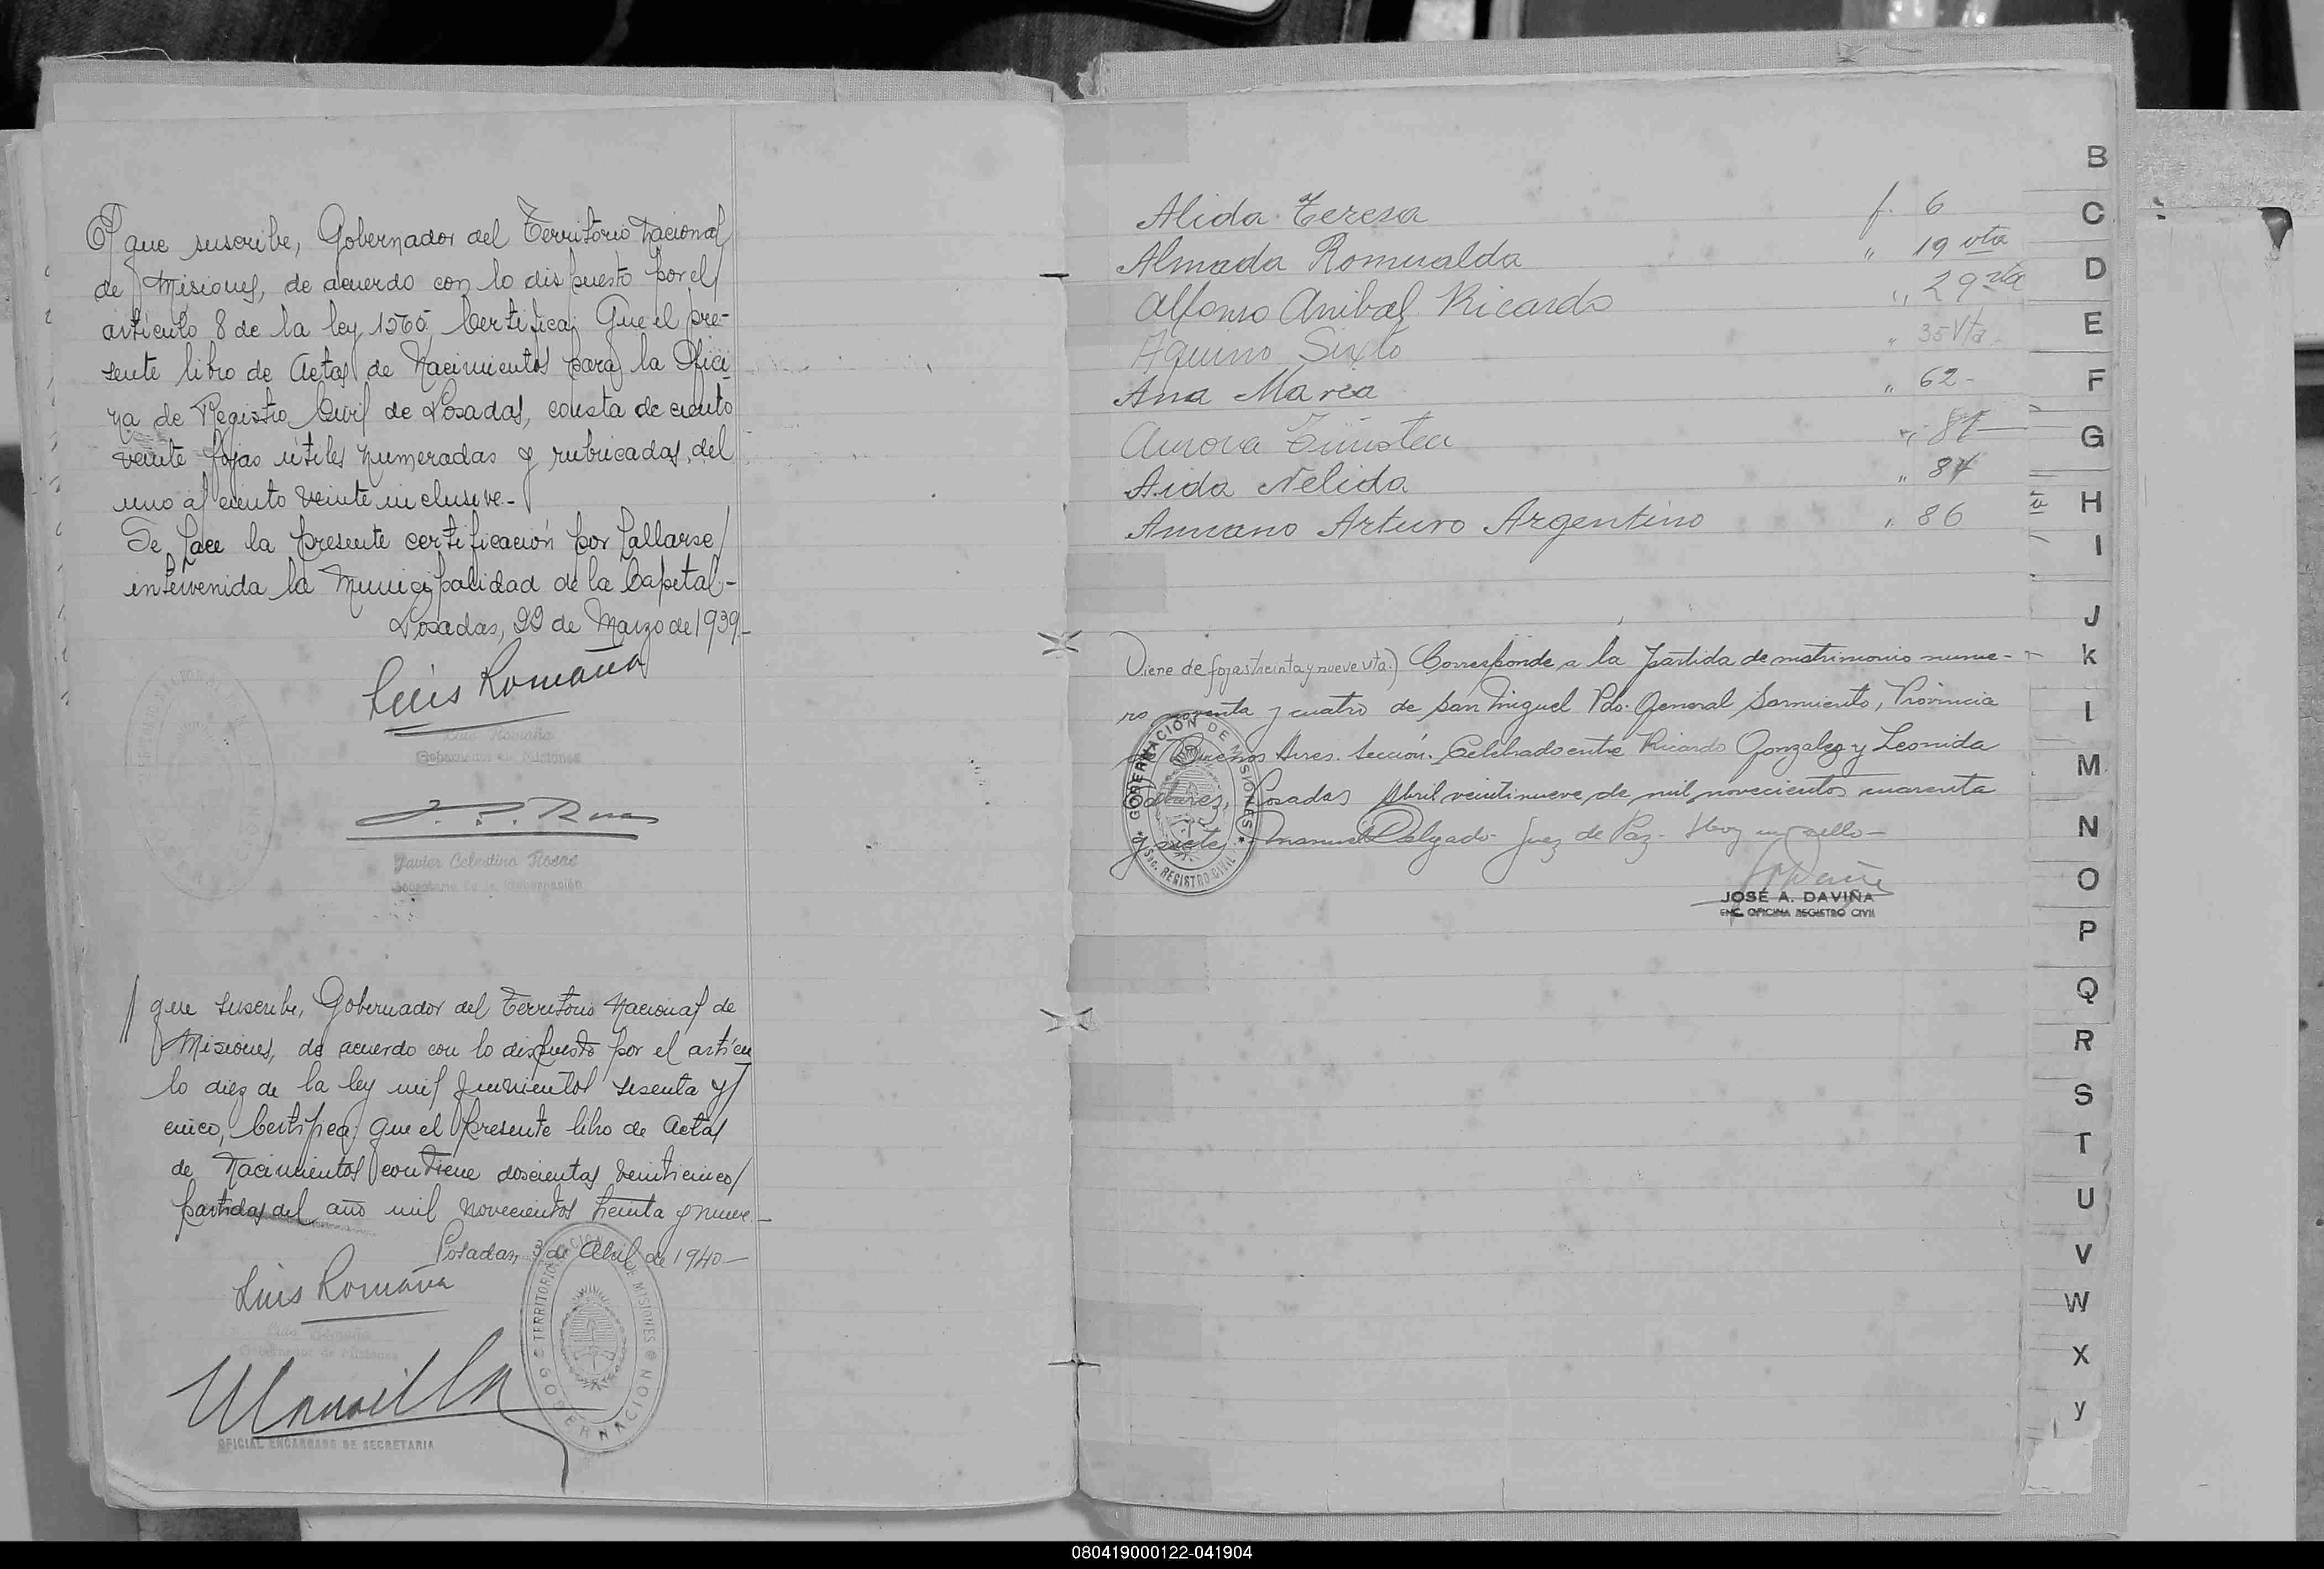 El que suscribe, Gobernador del Territorio Nacional
de Misiones, de acuerdo con lo dispuesto por el
artículo 8 de la ley 1565 Certifica; Que el pre-
sente libro de Actas de Nacimientos para la Ofici-
na de Registro Civil de Posadas, consta de ciento
veinte fojas útiles numeradas y rubricadas, del
uno al ciento veinte inclusive.-
Se hace la presente certificación por hallarse
intervenida la Municipalidad de la Capital.-
Posadas, 22 de Marzo de 1939.-
Luis Romaña
Luis Romaña
Gobernador de Misiones
Javier Celestino Rosas
Secretario de la Gobernación
que suscribe, Gobernador del Territorio Nacional de
Misiones, de acuerdo con lo dispuesto por el artícu
lo diez de la ley mil quinientos sesenta y
cinco, Certifica; Que el presente libro de Actas
de Nacimientos contiene doscientas veinticinco
partidas del año mil novecientos treinta y nueve.-
Posadas, 3 de Abril de 1940-
Luis Romaña
Luis Romaña
Gobernador de Misiones
OFICIAL ENCARGADO DE SECRETARIA
TERRITORIO NACIONAL DE MISIONES
GOBERNACION
Alida Teresa f. 6
Almada Romualda " 19 vta
Alfonso Anibal Ricardo " 29 vta
Aquino Sixto " 35 Vta.
Ana Maria " 62-
Aurora
Aida Nelida " 84
Arturo Argentino " 86
Viene de fojas treinta y nueve vta.) Corresponde a la partida de matrimonio nume-
ro noventa y cuatro de San Miguel Pdo. General Sarmiento, Provincia
de Buenos Aires. Sección. Celebrado entre Ricardo Gonzalez y Leonida
Posadas Abril veintinueve de mil novecientos cuarenta
y siete.- Manuel Delgado- Juez de Paz- Hay un sello-
GOBERNACION DE MISIONES
Sec. REGISTRO CIVIL
JOSÉ A. DAVIÑA
ENC. OFICINA REGISTRO CIVIL
B
C
D
E
F
G
H
I
J
K
L
M
N
O
P
Q
R
S
T
U
V
W
X
Y
080419000122-041904